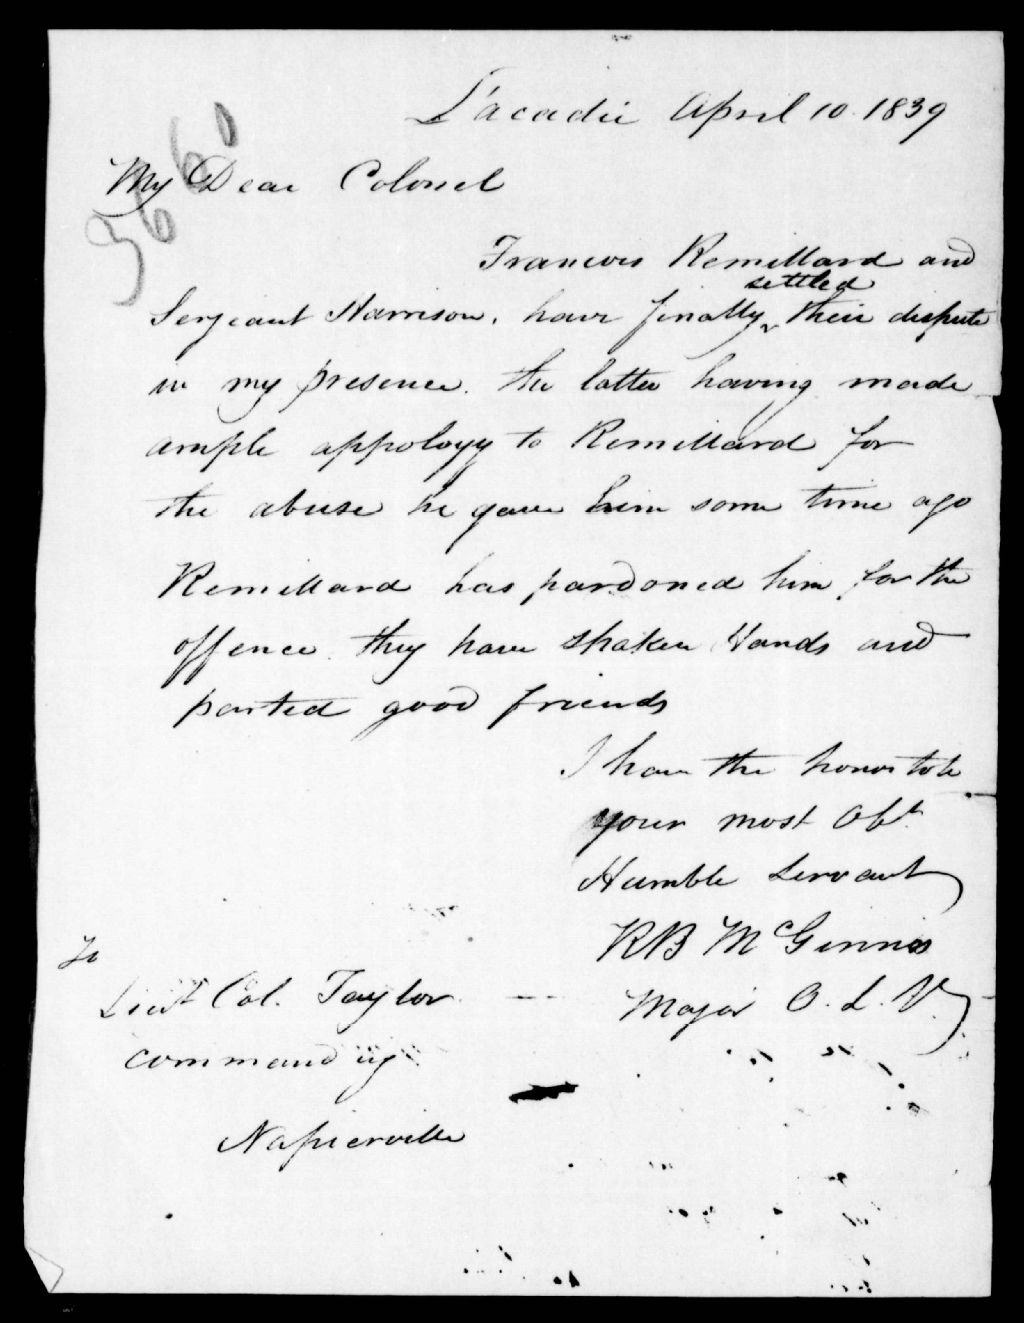 L'acadie April 10 1839
3660
My Dear Colonel
Francois Remillard and
settled
Serjeant Harrison. have finally their dispute
in my presence. the latter having made
ample appology to Remillard for
the abuse he gave him some time ago
Remillard has pardoned him for the
offence they have shaken Hands and
parted good friends
I have the honor to be
your most Obt.
Humble Servant
RB McGinnis
Major O. L. V.
To
Lieut Col. Taylor
commanding
Napierville